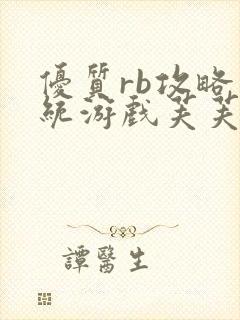 優質rb攻略
統游戲芙芙
譚醫生